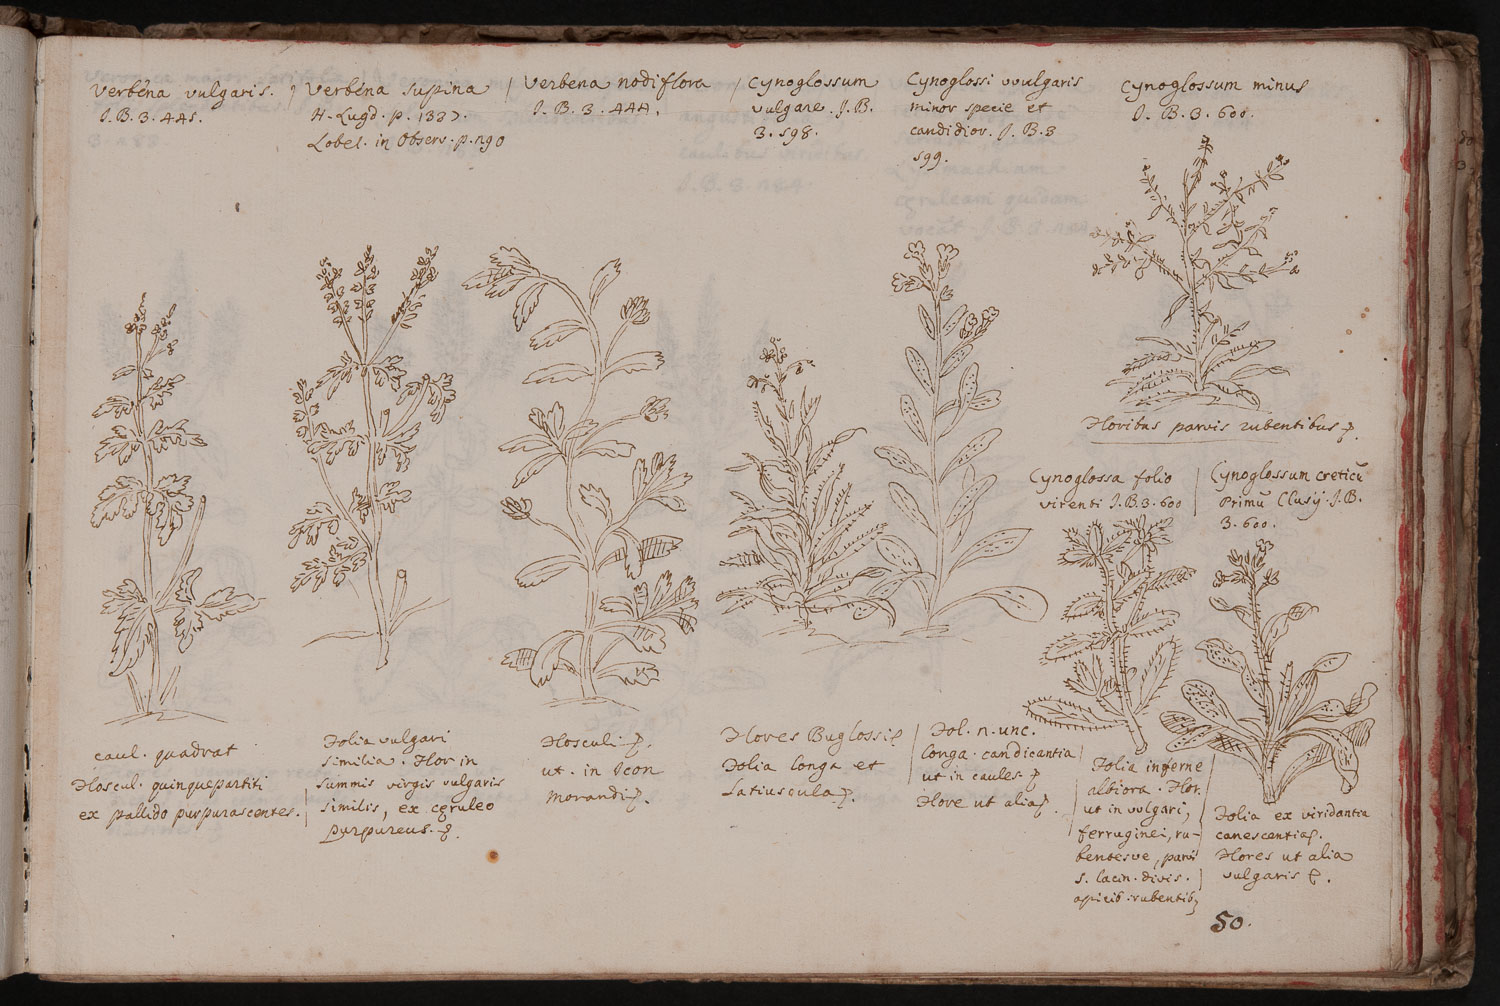 Verbena vulgaris.
J. B. 3. 445.
Verbena supina
H. Lugd. p. 1337
Lobel. in Observ. p. 290
Verbena nodiflora
J. B. 3. 444.
Cynoglossum
vulgare. J. B.
3. 598.
Cynoglossi vulgaris
minor specie et
candidior. J. B. 3
599.
Cynoglossum minus
J. B. 3. 600.
Floribus parvis rubentibus
Cynoglossa folio
virenti J. B. 3. 600
Cynoglossum creticũ
Primũ Clusij. J. B.
3. 600.
caul. quadrat
Floscul. quinquepartiti
ex pallido purpurascentes.
Folia vulgari
similia. Flor in
summis virgis vulgaris
similis, ex cęruleo
purpureus.
Flosculi
ut. in Icon
Morandi
Flores Buglossi
Folia longa et
Latiuscula
Fol. n. unc.
longa. candicantia
ut in caules
Flore ut alia
Folia inferne
albiora. Flor.
ut in vulgari,
ferruginei, ru-
bentesve, parvi
5. lacin. divis.
apicib. rubentib
Folia ex viridantia
canescentia
Flores ut alia
vulgaris
50.